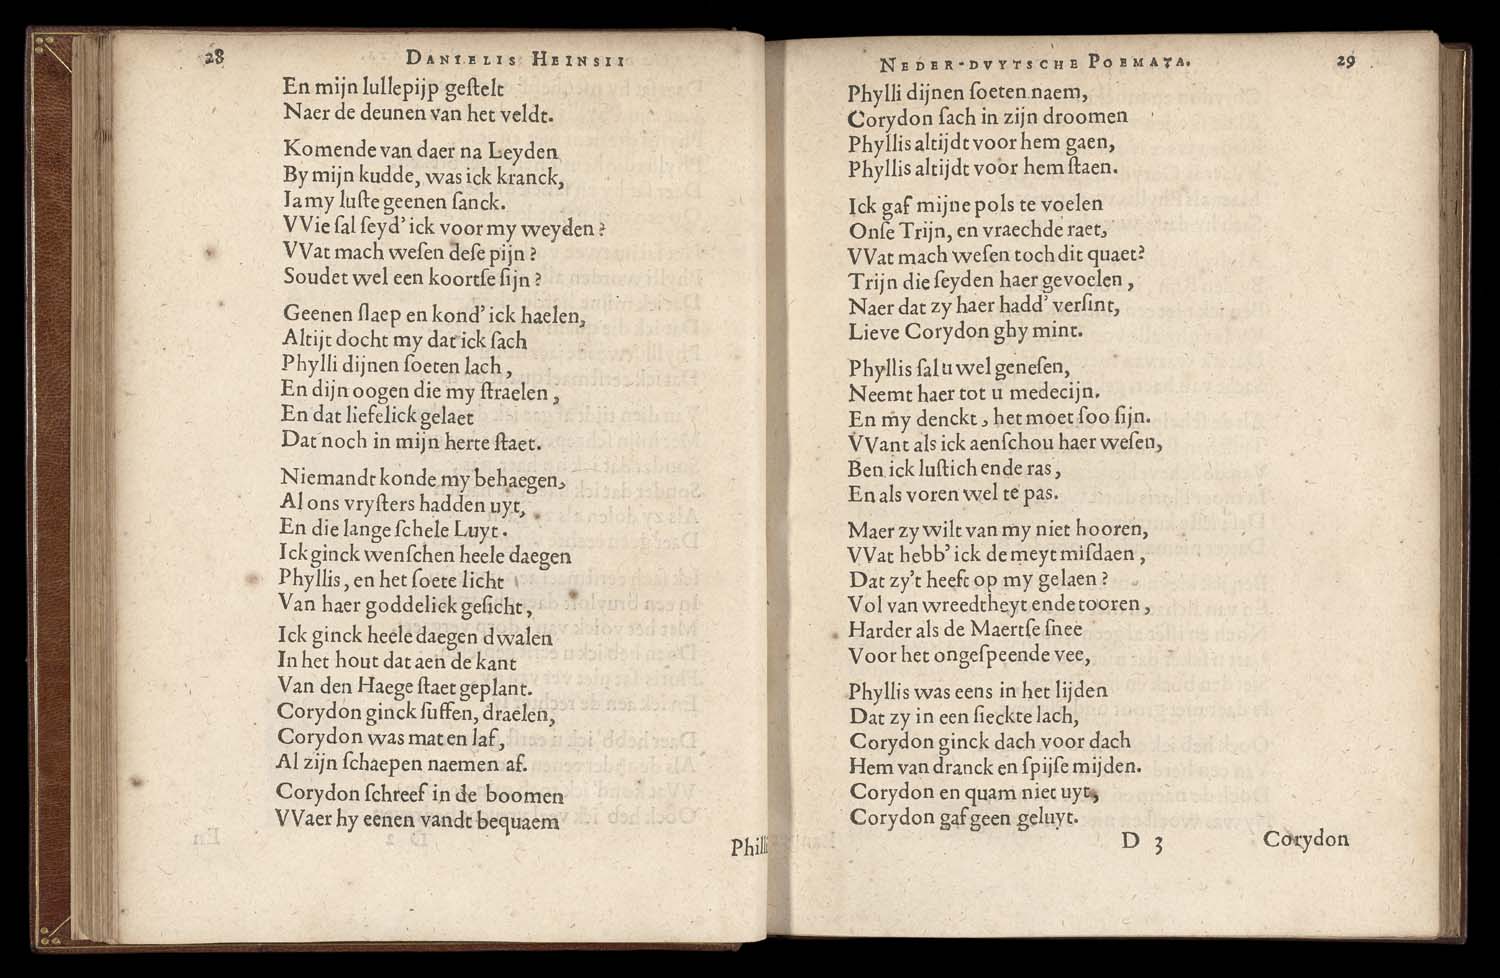 28
DANIELIS HEINSII
En mijn lullepijp geſtelt
Naer de deunen van het veldt.
Komende van daer na Leyden
By mijn kudde, was ick kranck,
Ia my luſte geenen ſanck.
VVie ſal ſeyd' ick voor my weyden?
VVat mach weſen deſe pijn?
Soudet wel een koortſe ſijn?
Geenen ſlaep en kond' ick haelen,
Altijt docht my dat ick ſach
Phylli dijnen ſoeten lach,
En dijn oogen die my ſtraelen,
En dat liefelick gelaet
Dat noch in mijn herte ſtaet.
Niemandt konde my behaegen,
Al ons vryſters hadden uyt,
En die lange ſchele Luyt.
Ick ginck wenſchen heele daegen
Phyllis, en het ſoete licht
Van haer goddelick geſicht,
Ick ginck heele daegen dwalen
In het hout dat aen de kant
Van den Haege ſtaet geplant.
Corydon ginck ſuffen, draelen,
Corydon was mat en laf,
Al zijn ſchaepen naemen af.
Corydon ſchreef in de boomen
VVaer hy eenen vandt bequaem
Philli
NEDER-DVYTSCHE POEMATA.
29
Phylli dijnen ſoeten naem,
Corydon ſach in zijn droomen
Phyllis altijdt voor hem gaen,
Phyllis altijdt voor hem ſtaen.
Ick gaf mijne pols te voelen
Onſe Trijn, en vraechde raet,
VVat mach weſen toch dit quaet?
Trijn die ſeyden haer gevoelen,
Naer dat zy haer hadd' verſint,
Lieve Corydon ghy mint.
Phyllis ſal u wel geneſen,
Neemt haer tot u medecijn.
En my denckt, het moet ſoo ſijn.
VVant als ick aenſchou haer weſen,
Ben ick luſtich ende ras,
En als voren wel te pas.
Maer zy wilt van my niet hooren,
VVat hebb' ick de meyt miſdaen,
Dat zy't heeft op my gelaen?
Vol van wreedtheyt ende tooren,
Harder als de Maertſe ſnee
Voor het ongeſpeende vee,
Phyllis was eens in het lijden
Dat zy in een ſieckte lach,
Corydon ginck dach voor dach
Hem van dranck en ſpijſe mijden.
Corydon en quam niet uyt,
Corydon gaf geen geluyt.
D 3
Corydon